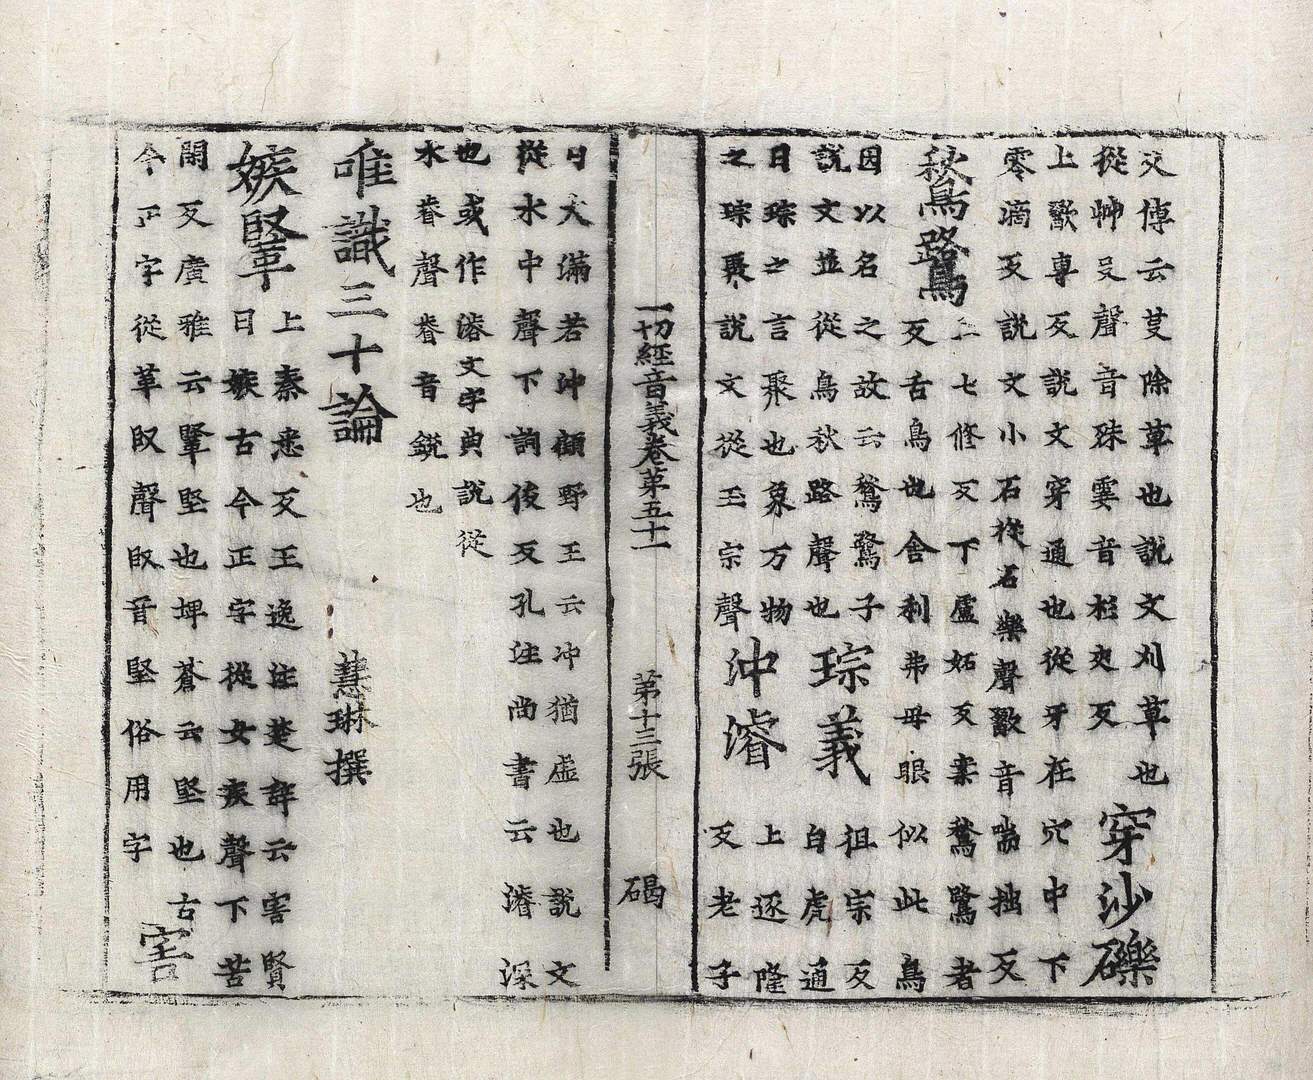 交傳云芟除草也說文刈草也
從艸殳聲音殊雲音杉夾反
穿沙礫
上歠專反說文穿通也從牙在穴中下
零滴反說文小石從石樂聲歠音喘拙反
鶖鷺
上七修反下盧妬反案鶖鷺者
反舌鳥也舍利弗母眼似此鳥
因以名之故云鶖鷺子
說文並從鳥秋路聲也
琮義
祖宗反白虎通
曰琮之言聚也象万物
之琮聚說文從玉宗聲
沖濬
上逐隆反老子
一切經音義卷第五十一 第十三張 碣
曰大滿若沖顧野王云冲猶虛也說文
從水中聲下詢俊反孔注尚書云濬深
也或作濬文字典說從
水睿聲睿音銳也
唯識三十論 慧琳撰
嫉
上秦悉反王逸注楚辭云害賢
曰嫉古今正字從女疾聲下苦
閑反廣雅云堅也埤蒼云堅也古
今正字從革臤聲臤音堅俗用字
害